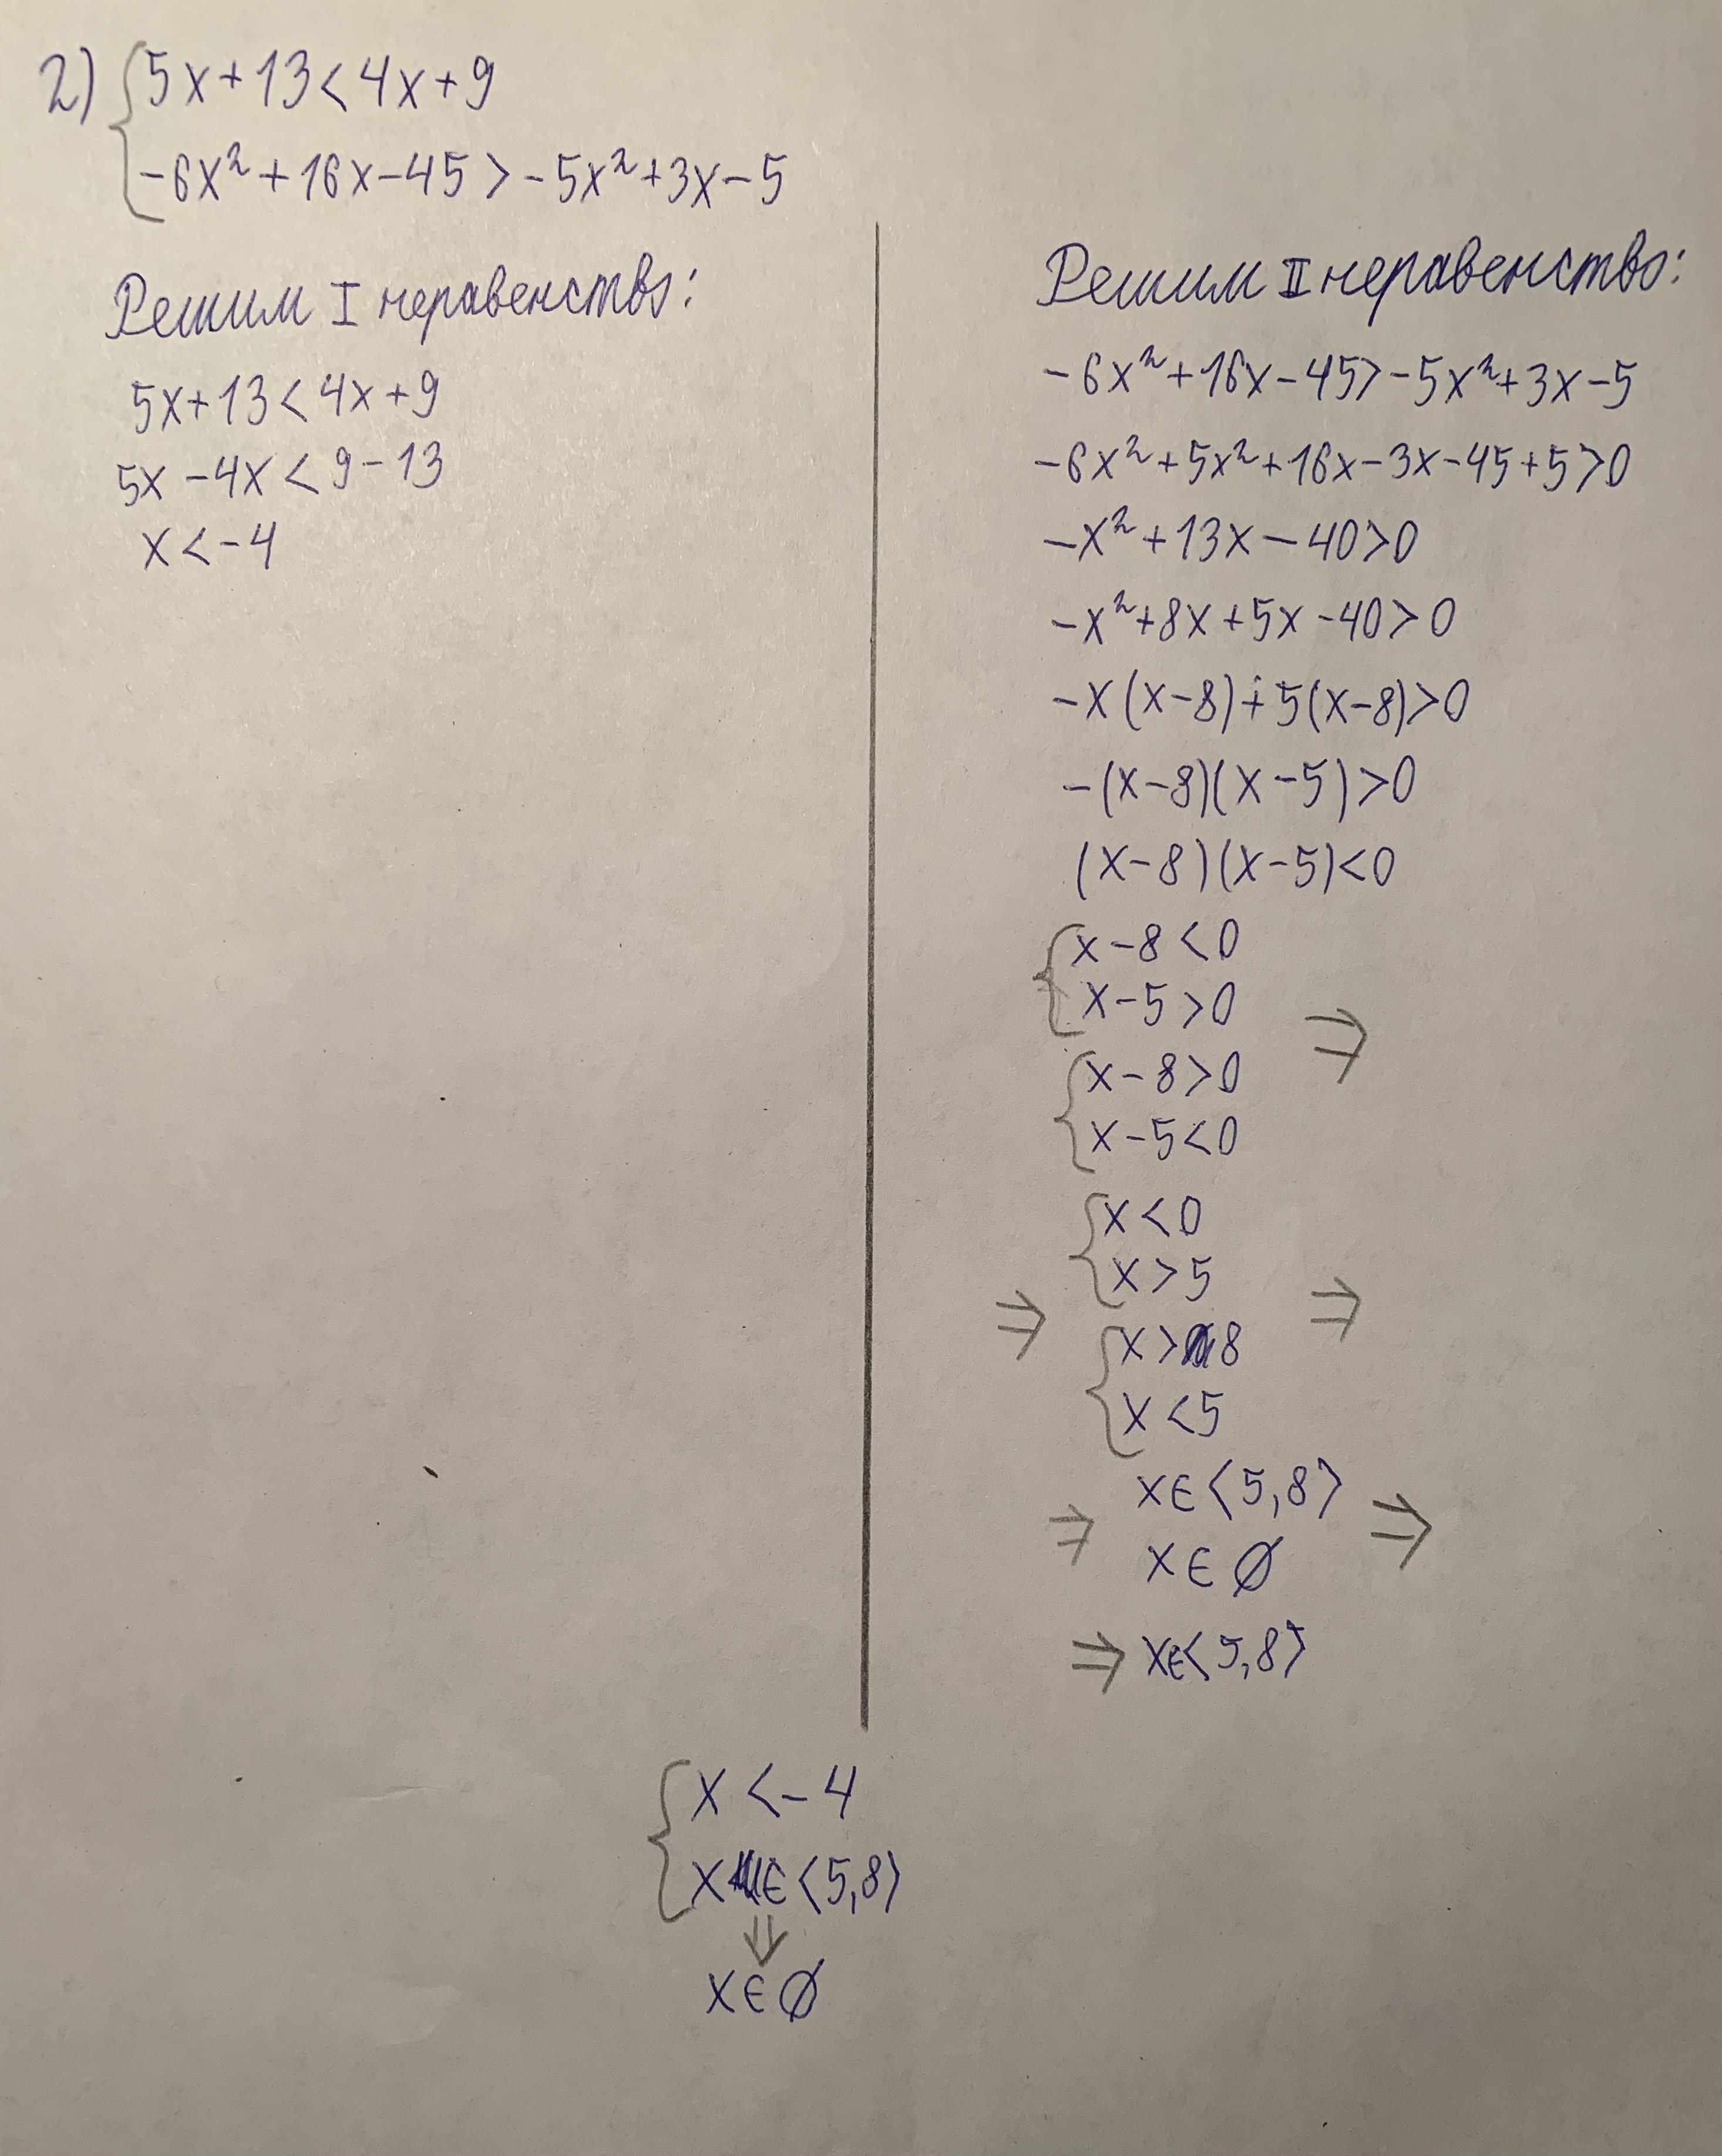 2) { 5x+13<4x+9
-6x²+16x-45>-5x²+3x-5
Решим I неравенство:
5x+13<4x+9
5x-4x<9-13
x<-4
Решим II неравенство:
-6x²+16x-45>-5x²+3x-5
-6x²+5x²+16x-3x-45+5>0
-x²+13x-40>0
-x²+8x+5x-40>0
-x(x-8)+5(x-8)>0
-(x-8)(x-5)>0
(x-8)(x-5)<0
{ x-8<0
x-5>0
⇒
{ x-8>0
x-5<0
{ x<0
x>5
⇒ ⇒
{ x>8
x<5
x∈⟨5,8⟩
⇒ ⇒
x∈∅
⇒ x∈⟨5,8⟩
{ x<-4
x∈⟨5,8⟩
⇓
x∈∅